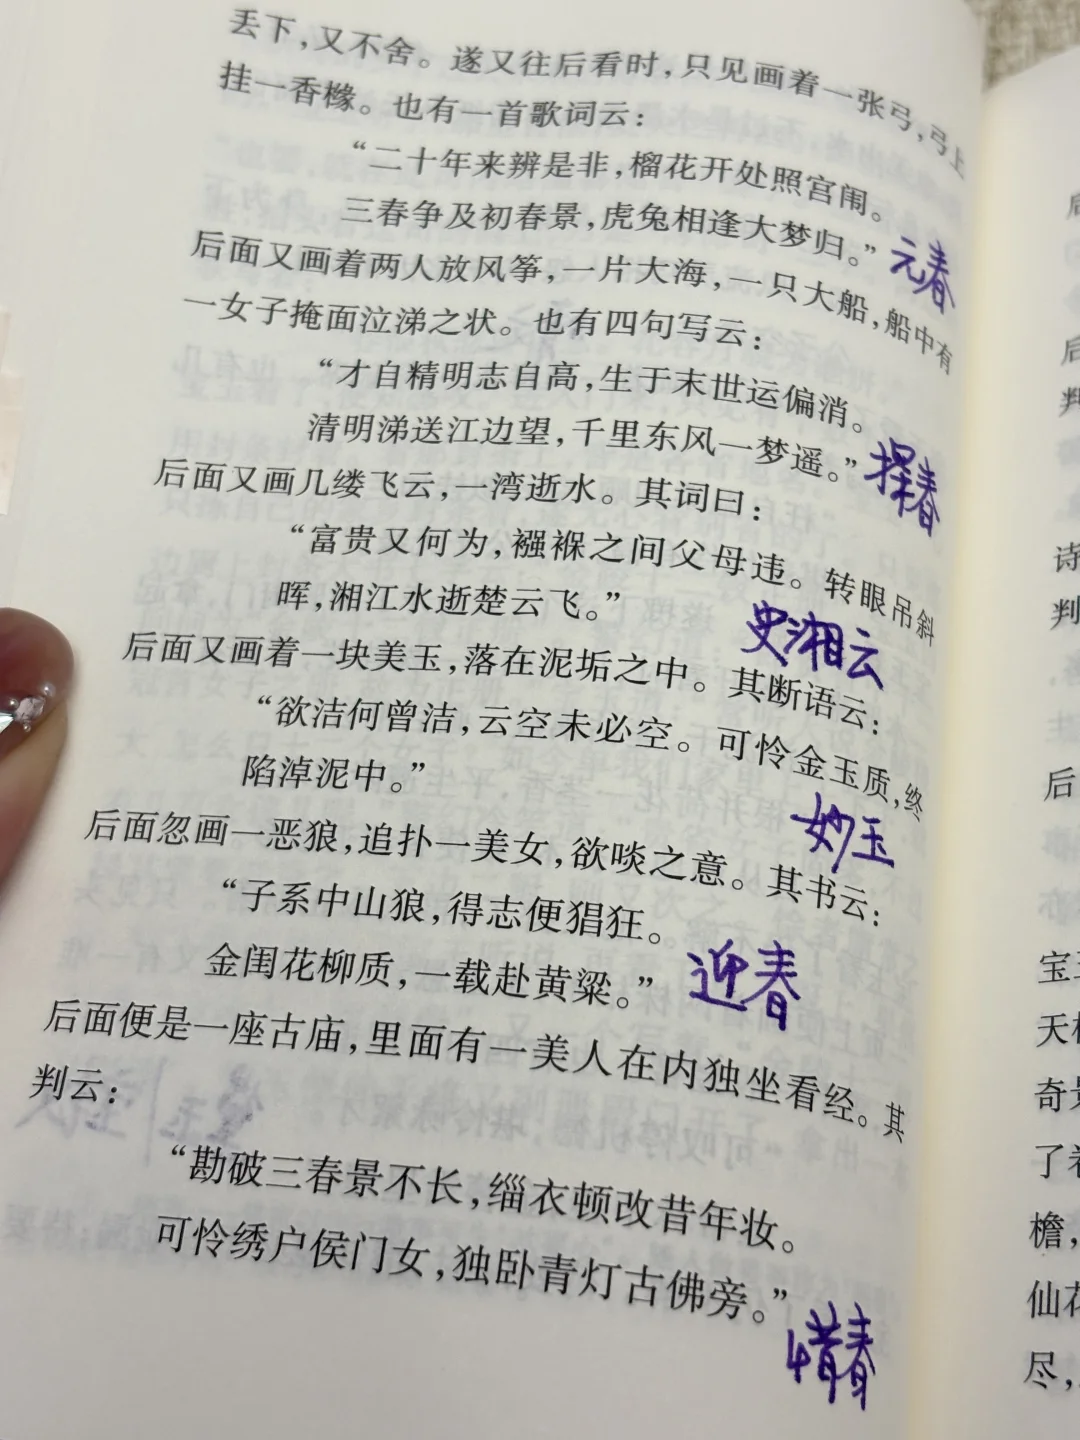 丢下，又不舍。遂又往后看时，只见画着一张弓，弓上
挂一香橼。也有一首歌词云：
“二十年来辨是非，榴花开处照宫闱。
三春争及初春景，虎兔相逢大梦归。”
元春
后面又画着两人放风筝，一片大海，一只大船，船中有
一女子掩面泣涕之状。也有四句写云：
“才自精明志自高，生于末世运偏消。
清明涕送江边望，千里东风一梦遥。”
探春
后面又画几缕飞云，一湾逝水。其词曰：
“富贵又何为，襁褓之间父母违。转眼吊斜
晖，湘江水逝楚云飞。”
史湘云
后面又画着一块美玉，落在泥垢之中。其断语云：
“欲洁何曾洁，云空未必空。可怜金玉质，终
陷淖泥中。”
妙玉
后面忽画一恶狼，追扑一美女，欲啖之意。其书云：
“子系中山狼，得志便猖狂。
金闺花柳质，一载赴黄粱。”
迎春
后面便是一座古庙，里面有一美人在内独坐看经。其
判云：
“勘破三春景不长，缁衣顿改昔年妆。
可怜绣户侯门女，独卧青灯古佛旁。”
惜春
后
判
诗
判
后
宝玉
天机
奇景
了卷
檐，
仙花
尽，